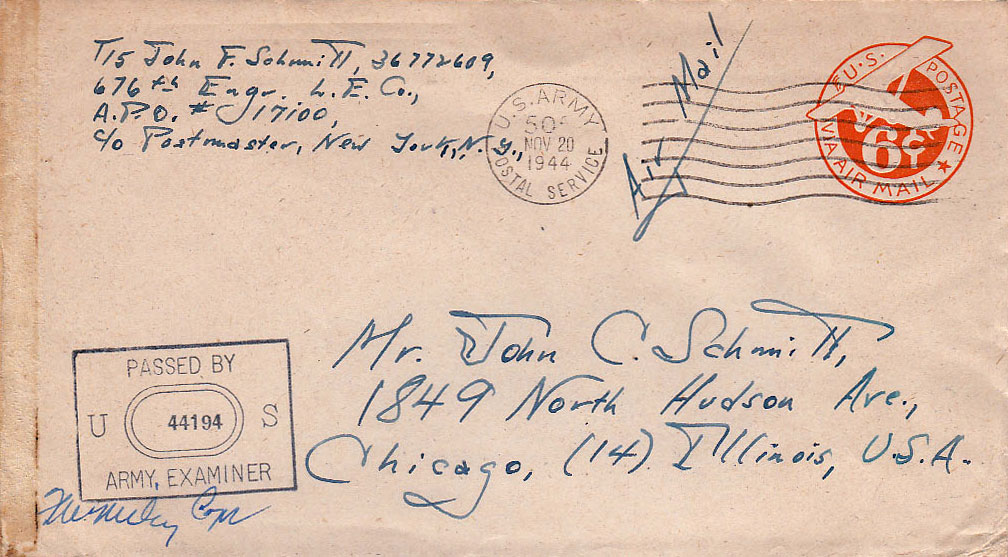 T/5 John F. Schmitt, 36772609,
676th Engr. L.E. Co.,
A.P.O. # 17100,
c/o Postmaster, New York, N.Y.,
U.S. ARMY
NOV 20
1944
POSTAL SERVICE
Air Mail
U.S. POSTAGE
6¢
VIA AIR MAIL
Mr. John C. Schmitt,
1849 North Hudson Ave.,
Chicago, (14) Illinois, U.S.A.
PASSED BY
U 44194 S
ARMY EXAMINER